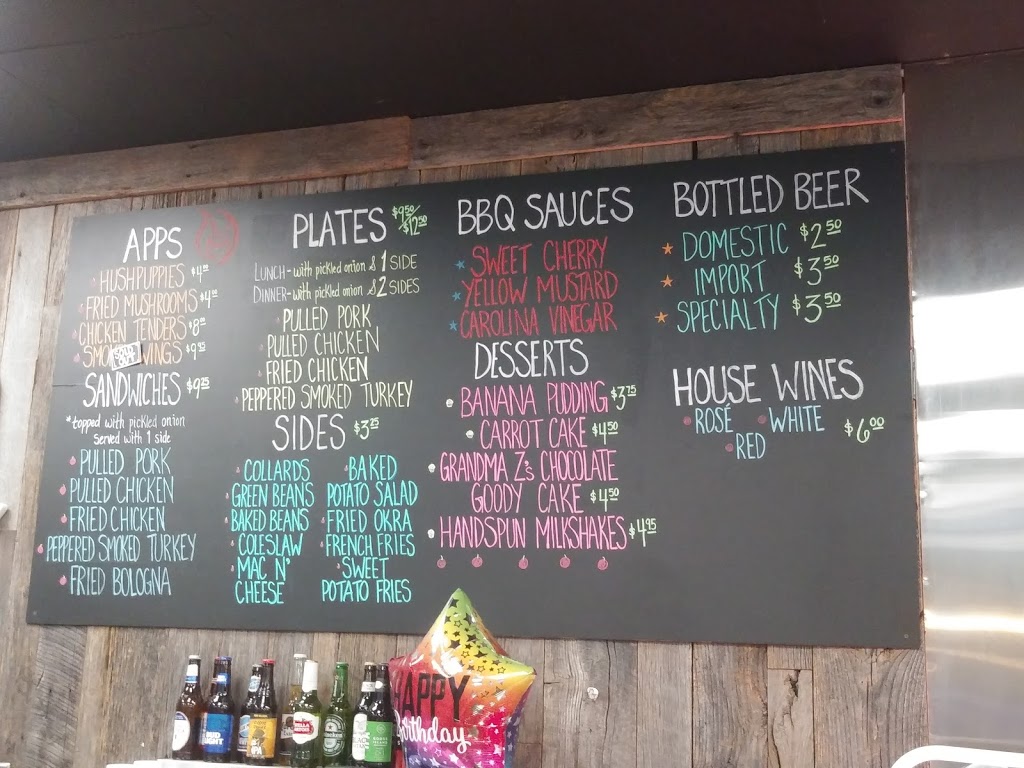 APPS
HUSHPUPPIES $4.00
FRIED MUSHROOMS $4.00
CHICKEN TENDERS $8.00
WINGS $9.95
SOLD OUT
SANDWICHES $9.25
*topped with pickled onion
served with 1 side
PULLED PORK
PULLED CHICKEN
FRIED CHICKEN
PEPPERED SMOKED TURKEY
FRIED BOLOGNA
PLATES $9.50/$12.50
LUNCH-with pickled onion & 1 SIDE
DINNER-with pickled onion & 2 SIDES
PULLED PORK
PULLED CHICKEN
FRIED CHICKEN
PEPPERED SMOKED TURKEY
SIDES $3.25
COLLARDS
GREEN BEANS
BAKED BEANS
COLESLAW
MAC N'
CHEESE
BAKED
POTATO SALAD
FRIED OKRA
FRENCH FRIES
SWEET
POTATO FRIES
BBQ SAUCES
SWEET CHERRY
YELLOW MUSTARD
CAROLINA VINEGAR
DESSERTS
BANANA PUDDING $3.75
CARROT CAKE $4.50
GRANDMA Z's CHOCOLATE
GOODY CAKE $4.50
HANDSPUN MILKSHAKES $4.95
BOTTLED BEER
DOMESTIC $2.50
IMPORT $3.50
SPECIALTY $3.50
HOUSE WINES
ROSÉ WHITE $6.00
RED
BUD
LIGHT
IPA
Heineken
GOOSE
ISLAND
HAPPY
Birthday